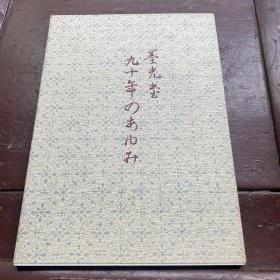 墨光堂
九十年のあゆみ